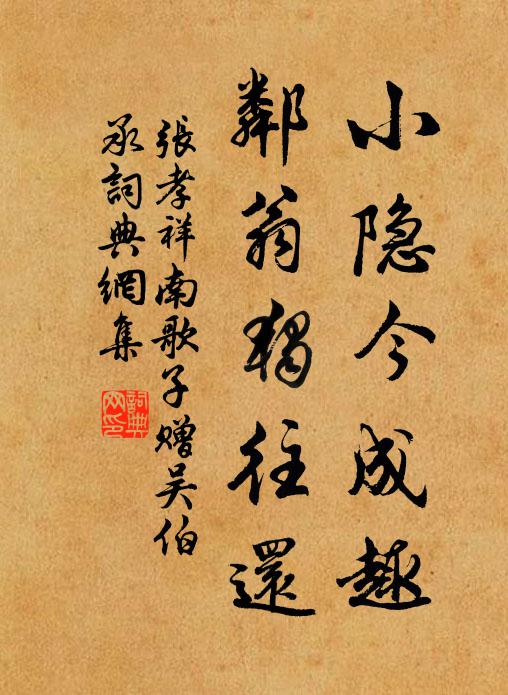 小隐今成趣
鄰翁独往還
張孝祥南歌子赠吴伯
承詞典網集
詞典
网印